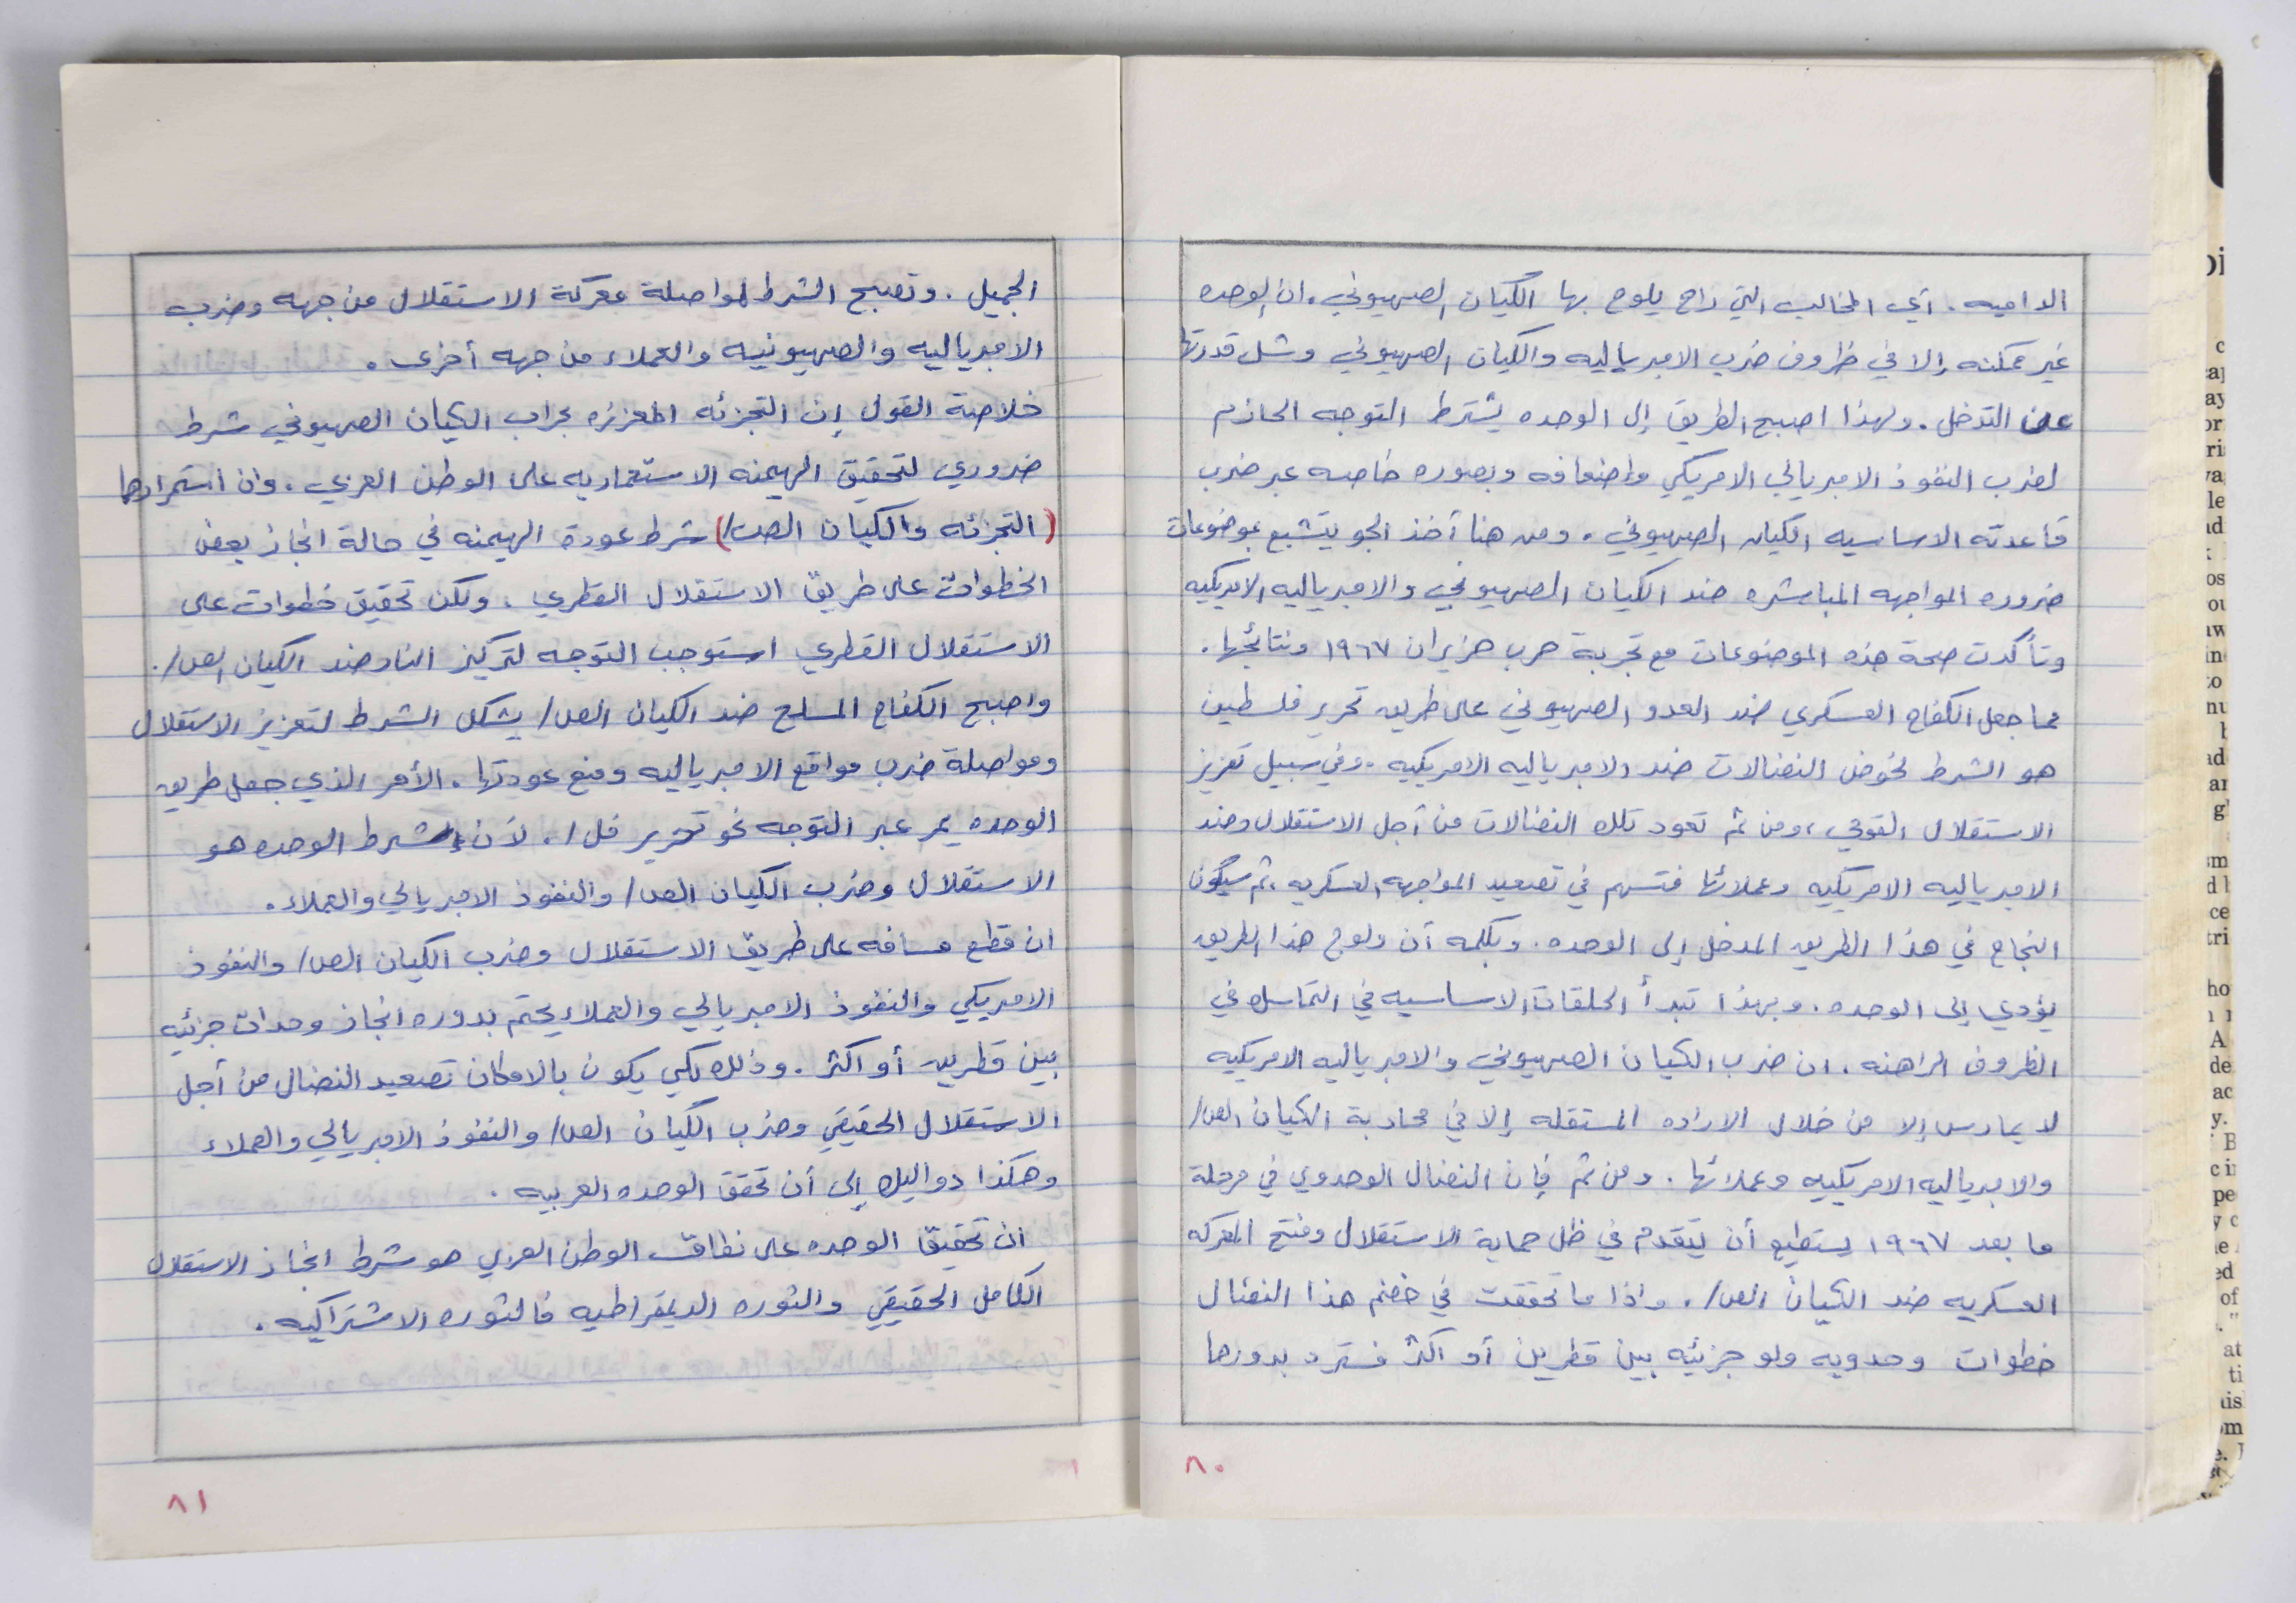 الداميه. أي المخالب التي راح يلوح بها الكيان الصهيوني. ان الوحده
غير ممكنه إلا في ظروف ضرب الامبرياليه والكيان الصهيوني وشل قدرتها
عن التدخل. ولهذا اصبح الطريق إلى الوحده يشترط التوجه الحازم
لضرب النفوذ الامبريالي الامريكي واضعافه وبصوره خاصه عبر ضرب
قاعدته الاساسيه الكيان الصهيوني. ومن هنا أخذ الجو يتشبع بموضوعات
ضروره المواجهه المباشره ضد الكيان الصهيوني والامبرياليه الامريكيه
وتأكدت صحة هذه الموضوعات مع تجربة حرب حزيران ١٩٦٧ ونتائجها.
مما جعل الكفاح العسكري ضد العدو الصهيوني على طريق تحرير فلسطين
هو الشرط لخوض النضالات ضد الامبرياليه الامريكيه. وفي سبيل تعزيز
الاستقلال القومي، ومن ثم تعود تلك النضالات من أجل الاستقلال وضد
الامبرياليه الامريكيه وعملائها فتسهم في تصعيد المواجهه العسكريه، ثم سيكون
النجاح في هذا الطريق المدخل إلى الوحده. وبكلمه أن ولوج هذا الطريق
يؤدي إلى الوحده. وبهذا تبدأ الحلقات الاساسيه في التماسك في
الظروف الراهنه. ان ضرب الكيان الصهيوني والامبرياليه الامريكيه
لا يمارس إلا من خلال الاراده المستقله إلا في محاربة الكيان الص/
والامبرياليه الامريكيه وعملائها. ومن ثم فإن النضال الوحدوي في مرحلة
ما بعد ١٩٦٧ يستطيع أن يتقدم في ظل حماية الاستقلال وفتح المعركه
العسكريه ضد الكيان الص/. واذا ما تحققت في خضم هذا النضال
خطوات وحدويه ولو جزئيه بين قطرين أو اكثر فسترد بدورها
٨٠
الجميل. وتصبح الشرط لمواصلة معركة الاستقلال من جهه وضرب
الامبرياليه والصهيونيه والعملاء من جهه أخرى.
خلاصة القول إن التجزئه المعززه بحراب الكيان الصهيوني شرط
ضروري لتحقيق الهيمنه الاستعماريه على الوطن العربي. وان استمرارهما
(التجزئه والكيان الص/) شرط عودة الهيمنه في حالة انجاز بعض
الخطوات على طريق الاستقلال القطري. ولكن تحقيق خطوات على
الاستقلال القطري استوجب التوجه لتركيز النار ضد الكيان الص/.
واصبح الكفاح المسلح ضد الكيان الص/ يشكل الشرط لتعزيز الاستقلال
ومواصلة ضرب مواقع الامبرياليه ومنع عودتها. الأمر الذي جعل طريق
الوحده يمر عبر التوجه نحو تحرير فل/. لأن شرط الوحده هو
الاستقلال وضرب الكيان الص/ والنفوذ الامبريالي والعملاء.
ان قطع مسافه على طريق الاستقلال وضرب الكيان الص/ والنفوذ
الامريكي والنفوذ الامبريالي والعملاء يحتم بدوره انجاز وحدات جزئيه
بين قطرين أو اكثر. وذلك لكي يكون بالامكان تصعيد النضال من أجل
الاستقلال الحقيقي وضرب الكيان الص/ والنفوذ الامبريالي والعملاء
وهكذا دواليك إلى أن تحقق الوحده العربيه.
ان تحقيق الوحده على نطاق الوطن العربي هو شرط انجاز الاستقلال
الكامل الحقيقي والثوره الديمقراطيه فالثوره الاشتراكيه.
٨١